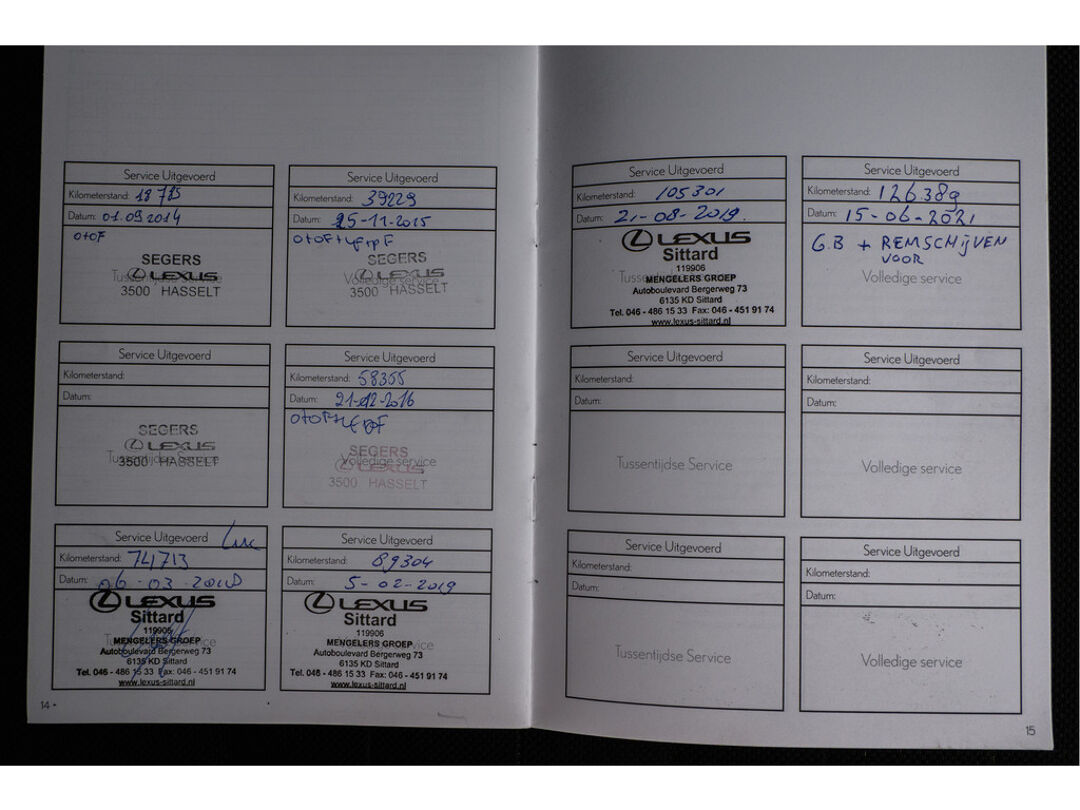 Service Uitgevoerd
Kilometerstand: 18715
Datum: 01.09.2014
O+OF
SEGERS
Tussentijdse Service
LEXUS
3500 HASSELT
Service Uitgevoerd
Kilometerstand: 39229
Datum: 25-11-2015
SEGERS
Volledige service
LEXUS
3500 HASSELT
Service Uitgevoerd
Kilometerstand:
Datum:
SEGERS
LEXUS
Tussentijdse Service
3500 HASSELT
Service Uitgevoerd
Kilometerstand: 58355
Datum: 21-12-2016
SEGERS
Volledige service
LEXUS
3500 HASSELT
Service Uitgevoerd
Kilometerstand: 74713
Datum: 06-03-2018
LEXUS
Sittard
119906
MENGELERS GROEP
Autoboulevard Bergerweg 73
6135 KD Sittard
Tel. 046 - 486 15 33 Fax: 046 - 451 91 74
www.lexus-sittard.nl
Service Uitgevoerd
Kilometerstand: 89304
Datum: 5-02-2019
LEXUS
Sittard
119906
MENGELERS GROEP
Autoboulevard Bergerweg 73
6135 KD Sittard
Tel. 046 - 486 15 33 Fax: 046 - 451 91 74
www.lexus-sittard.nl
14
Service Uitgevoerd
Kilometerstand: 105301
Datum: 21-08-2019.
LEXUS
Sittard
119906
MENGELERS GROEP
Autoboulevard Bergerweg 73
6135 KD Sittard
Tel. 046 - 486 15 33 Fax: 046 - 451 91 74
www.lexus-sittard.nl
Service Uitgevoerd
Kilometerstand: 126389
Datum: 15-06-2021
G.B + REMSCHIJVEN
VOOR
Volledige service
Service Uitgevoerd
Kilometerstand:
Datum:
Tussentijdse Service
Service Uitgevoerd
Kilometerstand:
Datum:
Volledige service
Service Uitgevoerd
Kilometerstand:
Datum:
Tussentijdse Service
Service Uitgevoerd
Kilometerstand:
Datum:
Volledige service
15